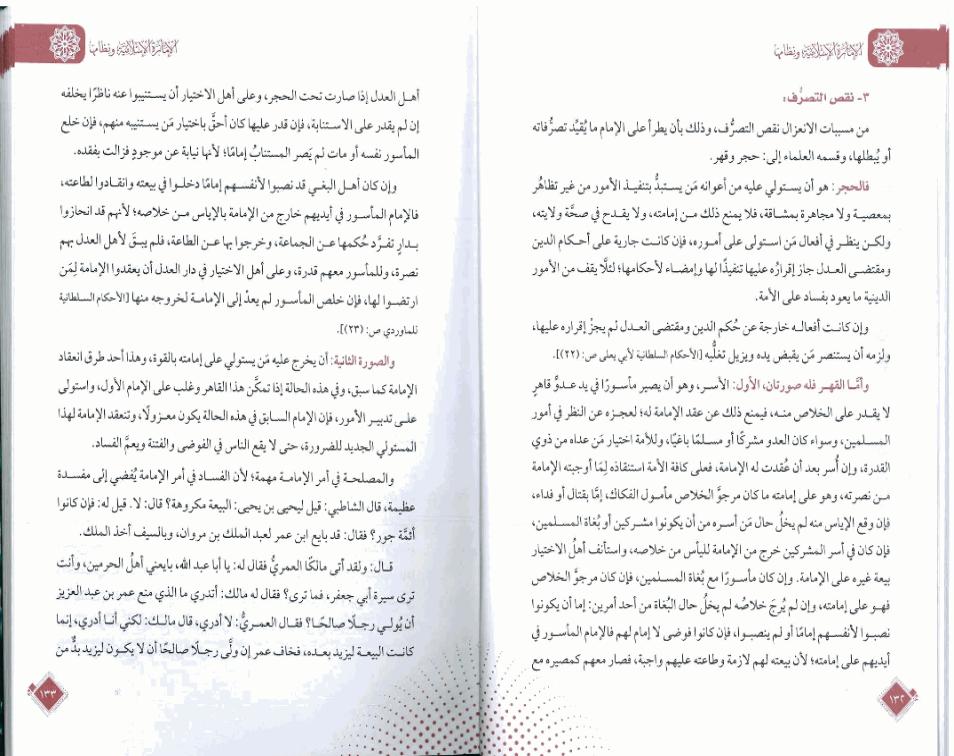 الإمارة الإسلامية ونظامها
٣- نقص التصرُّف:
من مسببات الانعزال نقص التصرُّف، وذلك بأن يطرأ على الإمام ما يُقيِّد تصرُّفاته
أو يُبطلها، وقسمه العلماء إلى: حجر وقهر.
فالحجر: هو أن يستولي عليه من أعوانه مَن يستبدُّ بتنفيذ الأمور من غير تظاهُر
بمعصية ولا مجاهرة بمشاقة، فلا يمنع ذلك من إمامته، ولا يقدح في صحَّة ولايته،
ولكن ينظر في أفعال مَن استولى على أموره، فإن كانت جارية على أحكام الدين
ومقتضى العدل جاز إقرارُه عليها تنفيذًا لها وإمضاء لأحكامها؛ لئلَّا يقف من الأمور
الدينية ما يعود بفساد على الأمة.
وإن كانت أفعاله خارجة عن حُكم الدين ومقتضى العدل لم يجزْ إقراره عليها،
ولزمه أن يستنصر مَن يقبض يده ويزيل تغلُّبه [الأحكام السلطانية لأبي يعلى ص: (٢٢)].
وأمَّا القهر فله صورتان، الأول: الأسر، وهو أن يصير مأسورًا في يد عدوٍّ قاهرٍ
لا يقدر على الخلاص منه، فيمنع ذلك عن عقد الإمامة له؛ لعجزه عن النظر في أمور
المسلمين، وسواء كان العدو مشركًا أو مسلمًا باغيًا، وللأمة اختيار مَن عداه من ذوي
القدرة، وإن أُسر بعد أن عُقدت له الإمامة، فعلى كافة الأمة استنقاذه لِمَا أوجبته الإمامة
من نصرته، وهو على إمامته ما كان مرجوَّ الخلاص مأمول الفكاك، إمَّا بقتال أو فداء،
فإن وقع الإياس منه لم يخلُ حال مَن أسره من أن يكونوا مشركين أو بُغاة المسلمين،
فإن كان في أسر المشركين خرج من الإمامة لليأس من خلاصه، واستأنف أهلُ الاختيار
بيعة غيره على الإمامة. وإن كان مأسورًا مع بُغاة المسلمين، فإن كان مرجوَّ الخلاص
فهو على إمامته، وإن لم يُرجَ خلاصُه لم يخلُ حال البُغاة من أحد أمرين: إما أن يكونوا
نصبوا لأنفسهم إمامًا أو لم ينصبوا، فإن كانوا فوضى لا إمام لهم فالإمام المأسور في
أيديهم على إمامته؛ لأن بيعته لهم لازمة وطاعته عليهم واجبة، فصار معهم كمصيره مع
١٣٢
الإمارة الإسلامية ونظامها
أهل العدل إذا صارت تحت الحجر، وعلى أهل الاختيار أن يستنيبوا عنه ناظرًا يخلفه
إن لم يقدر على الاستنابة، فإن قدر عليها كان أحقَّ باختيار مَن يستنيبه منهم، فإن خلع
المأسور نفسه أو مات لم يَصر المستنابُ إمامًا؛ لأنها نيابة عن موجودٍ فزالت بفقده.
وإن كان أهل البغي قد نصبوا لأنفسهم إمامًا دخلوا في بيعته وانقادوا لطاعته،
فالإمام المأسور في أيديهم خارج من الإمامة بالإياس من خلاصه؛ لأنهم قد انحازوا
بدارٍ تفرَّد حُكمها عن الجماعة، وخرجوا بها عن الطاعة، فلم يبقَ لأهل العدل بهم
نصرة، وللمأسور معهم قدرة، وعلى أهل الاختيار في دار العدل أن يعقدوا الإمامة لِمَن
ارتضوا لها، فإن خلص المأسور لم يعدْ إلى الإمامة لخروجه منها [الأحكام السلطانية
للماوردي ص: (٢٣)].
والصورة الثانية: أن يخرج عليه مَن يستولي على إمامته بالقوة، وهذا أحد طرق انعقاد
الإمامة كما سبق، وفي هذه الحالة إذا تمكَّن هذا القاهر وغلب على الإمام الأول، واستولى
على تدبير الأمور، فإن الإمام السابق في هذه الحالة يكون معزولًا، وتنعقد الإمامة لهذا
المستولي الجديد للضرورة، حتى لا يقع الناس في الفوضى والفتنة ويعمَّ الفساد.
والمصلحة في أمر الإمامة مهمة؛ لأن الفساد في أمر الإمامة يُفضي إلى مفسدة
عظيمة، قال الشاطبي: قيل ليحيى بن يحيى: البيعة مكروهة؟ قال: لا. قيل له: فإن كانوا
أئمَّة جور؟ فقال: قد بايع ابن عمر لعبد الملك بن مروان، وبالسيف أخذ الملك.
قال: ولقد أتى مالكًا العمريُّ فقال له: يا أبا عبد الله، بايعني أهلُ الحرمين، وأنت
ترى سيرة أبي جعفر، فما ترى؟ فقال له مالك: أتدري ما الذي منع عمر بن عبد العزيز
أن يُولي رجلًا صالحًا؟ فقال العمريُّ: لا أدري، قال مالك: لكني أنا أدري، إنما
كانت البيعة ليزيد بعده، فخاف عمر إن ولَّى رجلًا صالحًا أن لا يكون ليزيد بدٌّ من
١٣٣